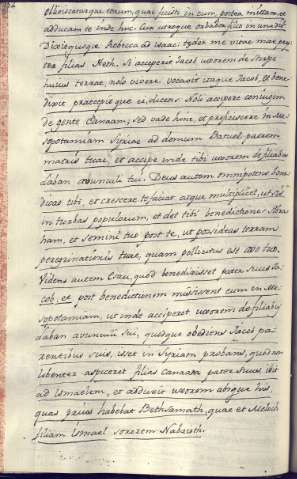 obliviscaturque eorum, quae fecisti in eum, postea mittam et
adducam te inde huc. Cur utroque orbabor filio in una die?
Dixitque Rebecca ad Isaac: tædet me vitæ meæ prop-
ter filias Heth. Si acceperit Jacob uxorem de stirpe
hujus terræ, nolo vivere. Vocavit itaque Jacob, et bene-
dixit, præcepitque ei, dicens: Noli accipere conjugem
de gente Canaam; sed vade hinc, et proficiscere in Me-
sopotamiam Syriæ ad domum Batuel patrem
matris tuæ, et accipe inde tibi uxorem de filiabus
Laban avunculi tui. Deus autem omnipotens bene-
dicat tibi, et crescere te faciat atque multiplicet, ut sis
in turbas populorum, et det tibi benedictiones Abra-
ham, et semini tuo post te, ut possideas terram
peregrinationis tuæ, quam pollicitus est avo tuo.
Videns autem Esau, quod benedixisset pater suus Ja-
cob, et post benedictionem misissent eum in Me-
sopotamiam, ut inde acciperet uxorem de filiabus
Laban avunculi sui, quodque obediens Jacob pa-
rentibus suis, isset in Syriam probans, quod non
libenter aspiceret filias Canaan pater suus ivit
ad Ismaelem, et adduxit uxorem absque his,
quas prius habebat Bethsamath, quæ et Meleth
filiam Ismael sororem Nabaioth.